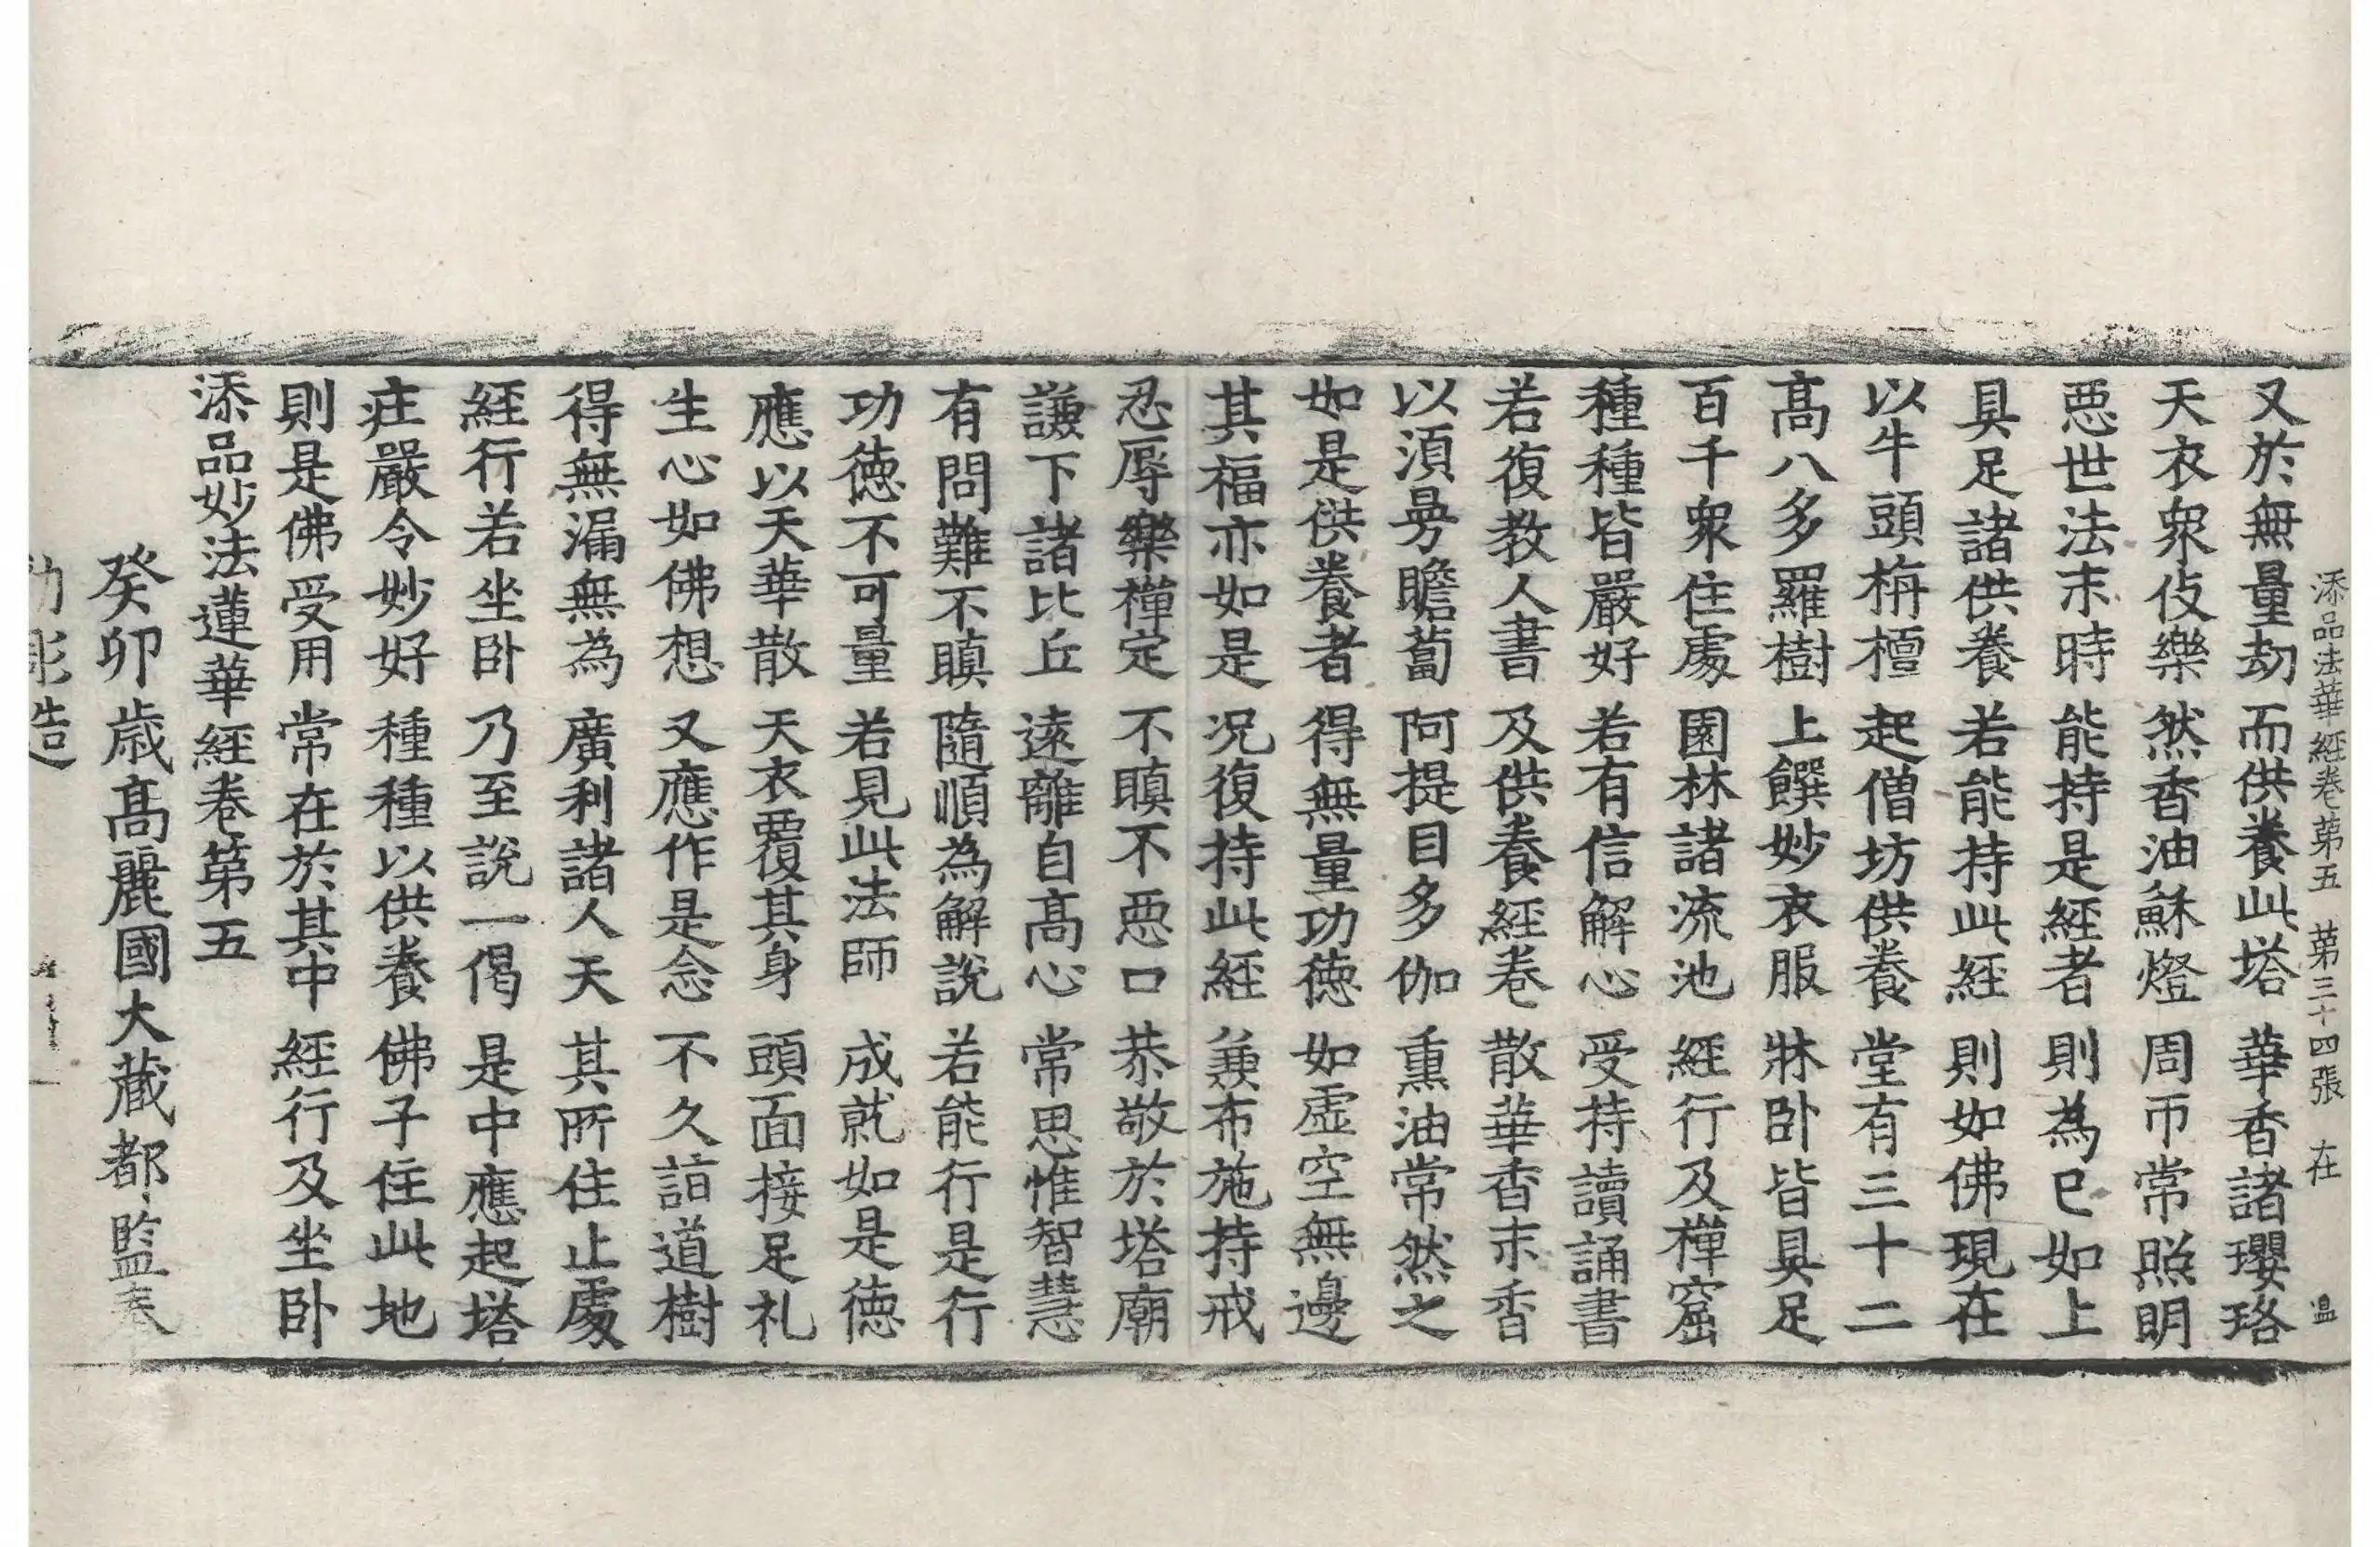 添品法華經卷第五 第三十四張 在 温
又於無量劫 而供養此塔 華香諸瓔珞
天衣衆伎樂 然香油蘇燈 周帀常照明
惡世法末時 能持是經者 則為已如上
具足諸供養 若能持此經 則如佛現在
以牛頭栴檀 起僧坊供養 堂有三十二
高八多羅樹 上饌妙衣服 牀卧皆具足
百千衆住處 園林諸流池 經行及禪窟
種種皆嚴好 若有信解心 受持讀誦書
若復教人書 及供養經卷 散華香末香
以須曼瞻蔔 阿提目多伽 熏油常然之
如是供養者 得無量功德 如虛空無邊
其福亦如是 況復持此經 兼布施持戒
忍辱樂禪定 不瞋不惡口 恭敬於塔廟
謙下諸比丘 遠離自高心 常思惟智慧
有問難不瞋 隨順為解說 若能行是行
功德不可量 若見此法師 成就如是德
應以天華散 天衣覆其身 頭面接足礼
生心如佛想 又應作是念 不久詣道樹
得無漏無為 廣利諸人天 其所住止處
經行若坐卧 乃至說一偈 是中應起塔
莊嚴令妙好 種種以供養 佛子住此地
則是佛受用 常在於其中 經行及坐卧
添品妙法蓮華經卷第五
癸卯歳高麗國大藏都監奉
勑彫造